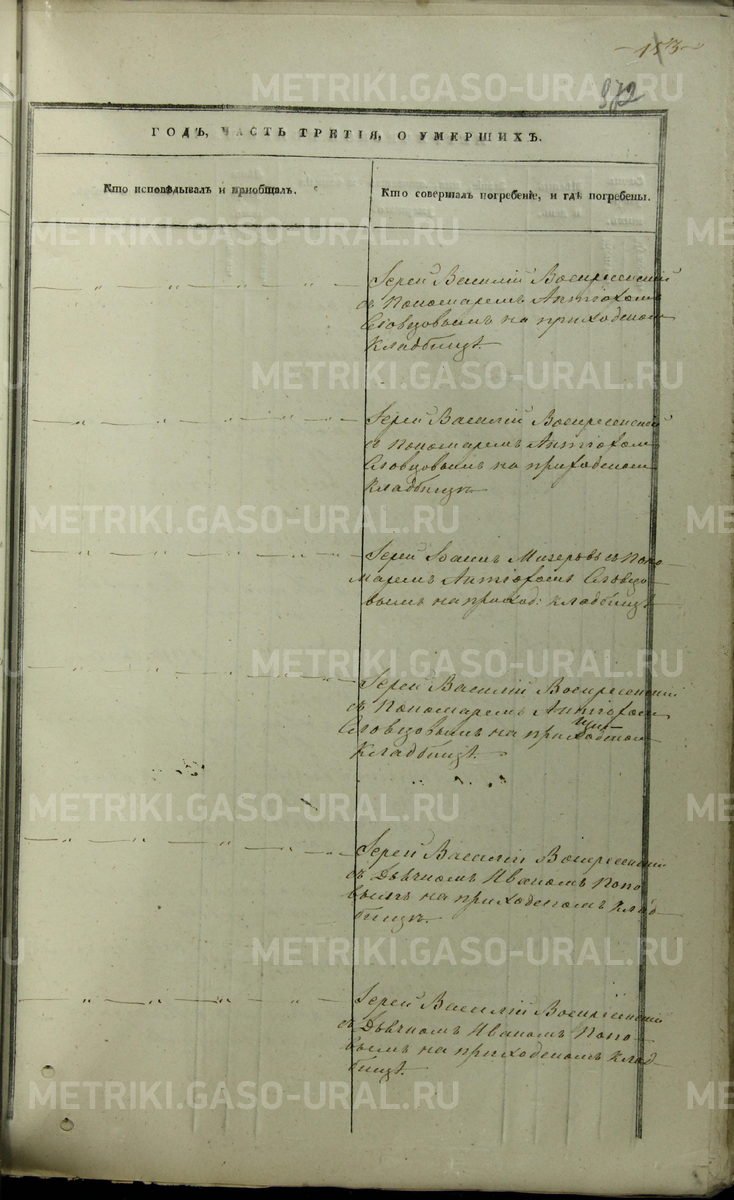 153
972
ГОДЪ, ЧАСТЬ ТРЕТІЯ, О УМЕРШИХЪ.
Кто исповѣдывалъ и пріобщалъ.
Кто совершалъ погребеніе, и гдѣ погребены.
— „ — „ — „ — „ — „ — Іерей Василій Воскресенскій
съ Пономаремъ Антіохомъ
Словцовымъ на приходскомъ
кладбищѣ.
— „ — „ — „ — „ — „ — Іерей Василій Воскресенскій
съ Пономаремъ Антіохомъ
Словцовымъ на приходскомъ
кладбищѣ
— „ — „ — „ — „ — „ — Іерей Іоаннъ Мизеровъ съ Поно-
маремъ Антіохомъ Словцо-
вымъ на приход: кладбищѣ
— „ — „ — „ — „ — „ — Іерей Василій Воскресенскій
съ Пономаремъ Антіохомъ
Словцовымъ на приходскомъ
кладбищѣ.
— „ — „ — „ — „ — „ — Іерей Василій Воскресенскій
съ Дьячкомъ Иваномъ Попо-
вымъ на приходскомъ клад-
бищѣ.
— „ — „ — „ — „ — Іерей Василій Воскресенскій
съ Дьячкомъ Иваномъ Попо-
вымъ на приходскомъ клад-
бищѣ.
METRIKI.GASO-URAL.RU